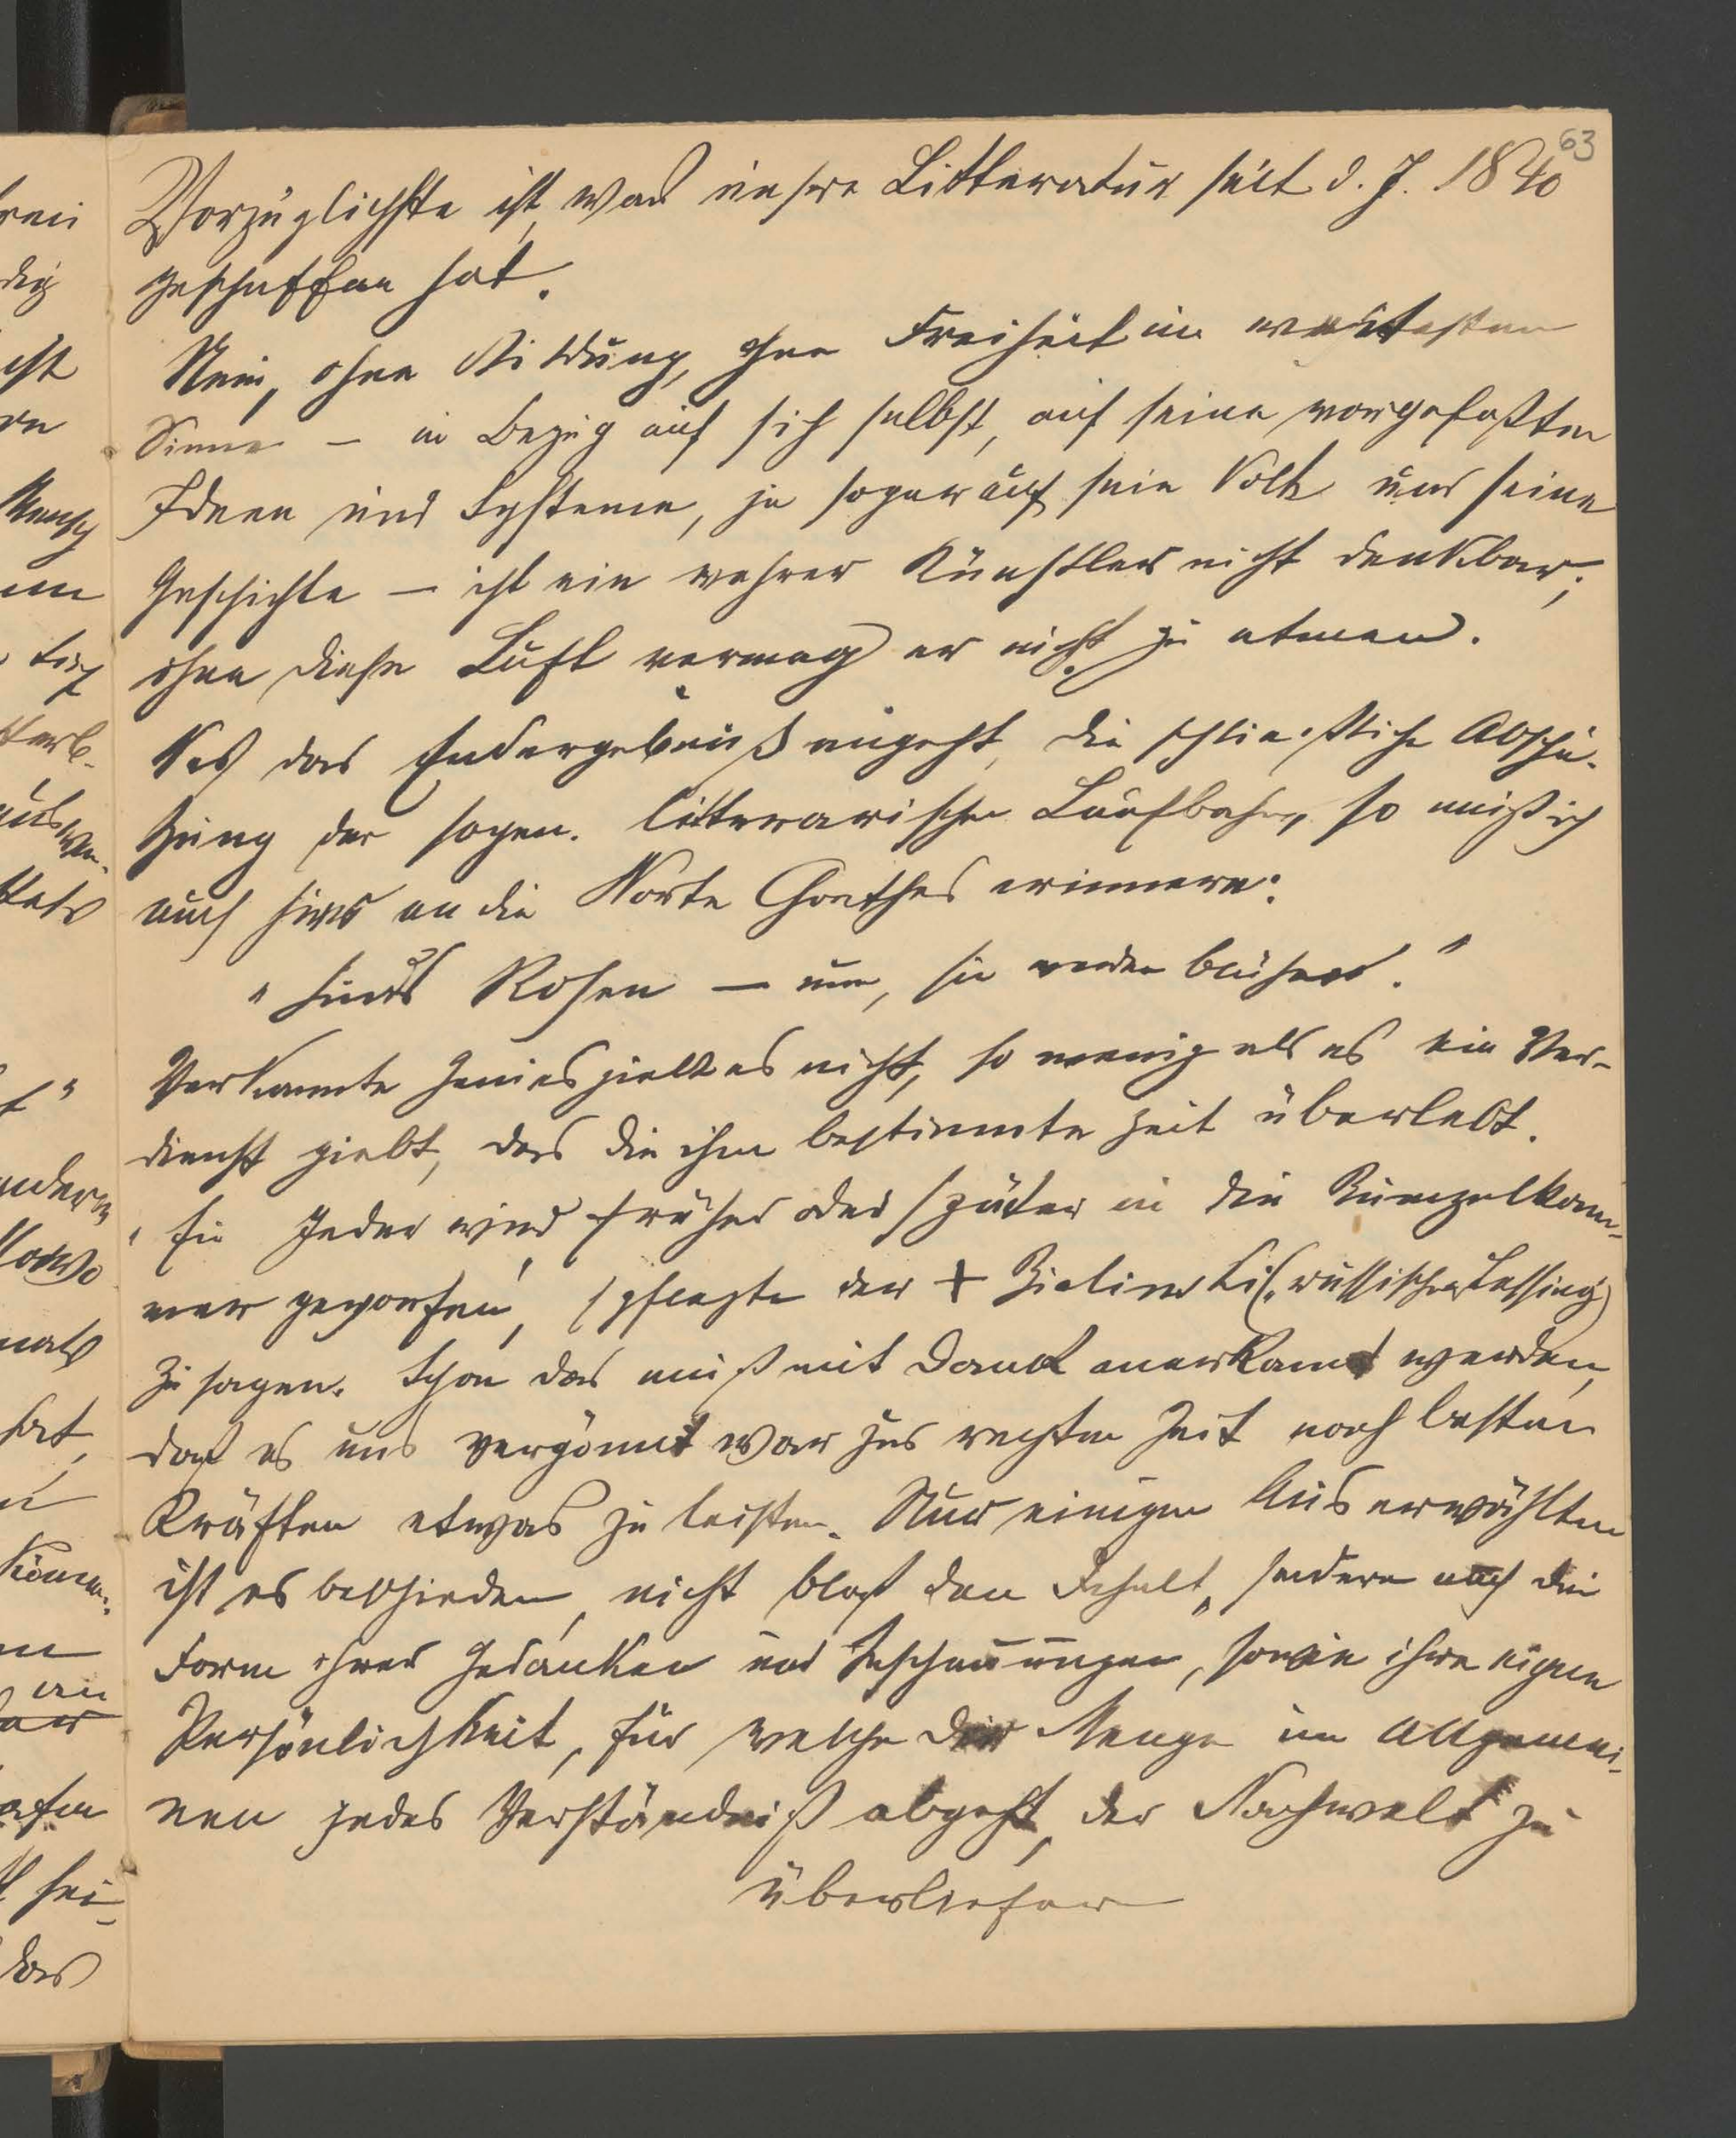 63
Vorzüglichste ist, was unsre Litteratur seit d. J. 1840
geschaffen hat.
Nein, ohne Bildung, ohne Freiheit im weitesten
Sinne – in Bezug auf sich selbst, auf seine vorgefaßten
Ideen und Systeme, ja sogar auf sein Volk und seine
Geschichte – ist ein wahrer Künstler nicht denkbar;
ohne diese Luft vermag er nicht zu atmen.
Was das Endergebniß angeht, die schließliche Abschä-
tzung der sogen. litterarischen Laufbahn, so muß ich
auch hier an die Worte Goethes erinnern:
"Sinds Rosen – nun, sie werden blühen."
Verkannte Genies giebt es nicht, so wenig als es ein Ver-
dienst giebt, das die ihm bestimmte Zeit überlebt.
"Ein Jeder wird früher oder später in die Rumpelkam-
mer geworfen", pflegte der + Bielinski (russischer Lessing)
zu sagen. Schon das muß mit Dank anerkannt werden,
daß es uns vergönnt war zur rechten Zeit nach besten
Kräften etwas zu leisten. Nur einigen Auserwählten
ist es beschieden, nicht bloß den Inhalt, sondern auch die
Form ihrer Gedanken und Anschauungen, sowie ihre eigene
Persönlichkeit, für welche der Menge im Allgemei-
nen jedes Verständniß abgeht, der Nachwelt zu
überliefern